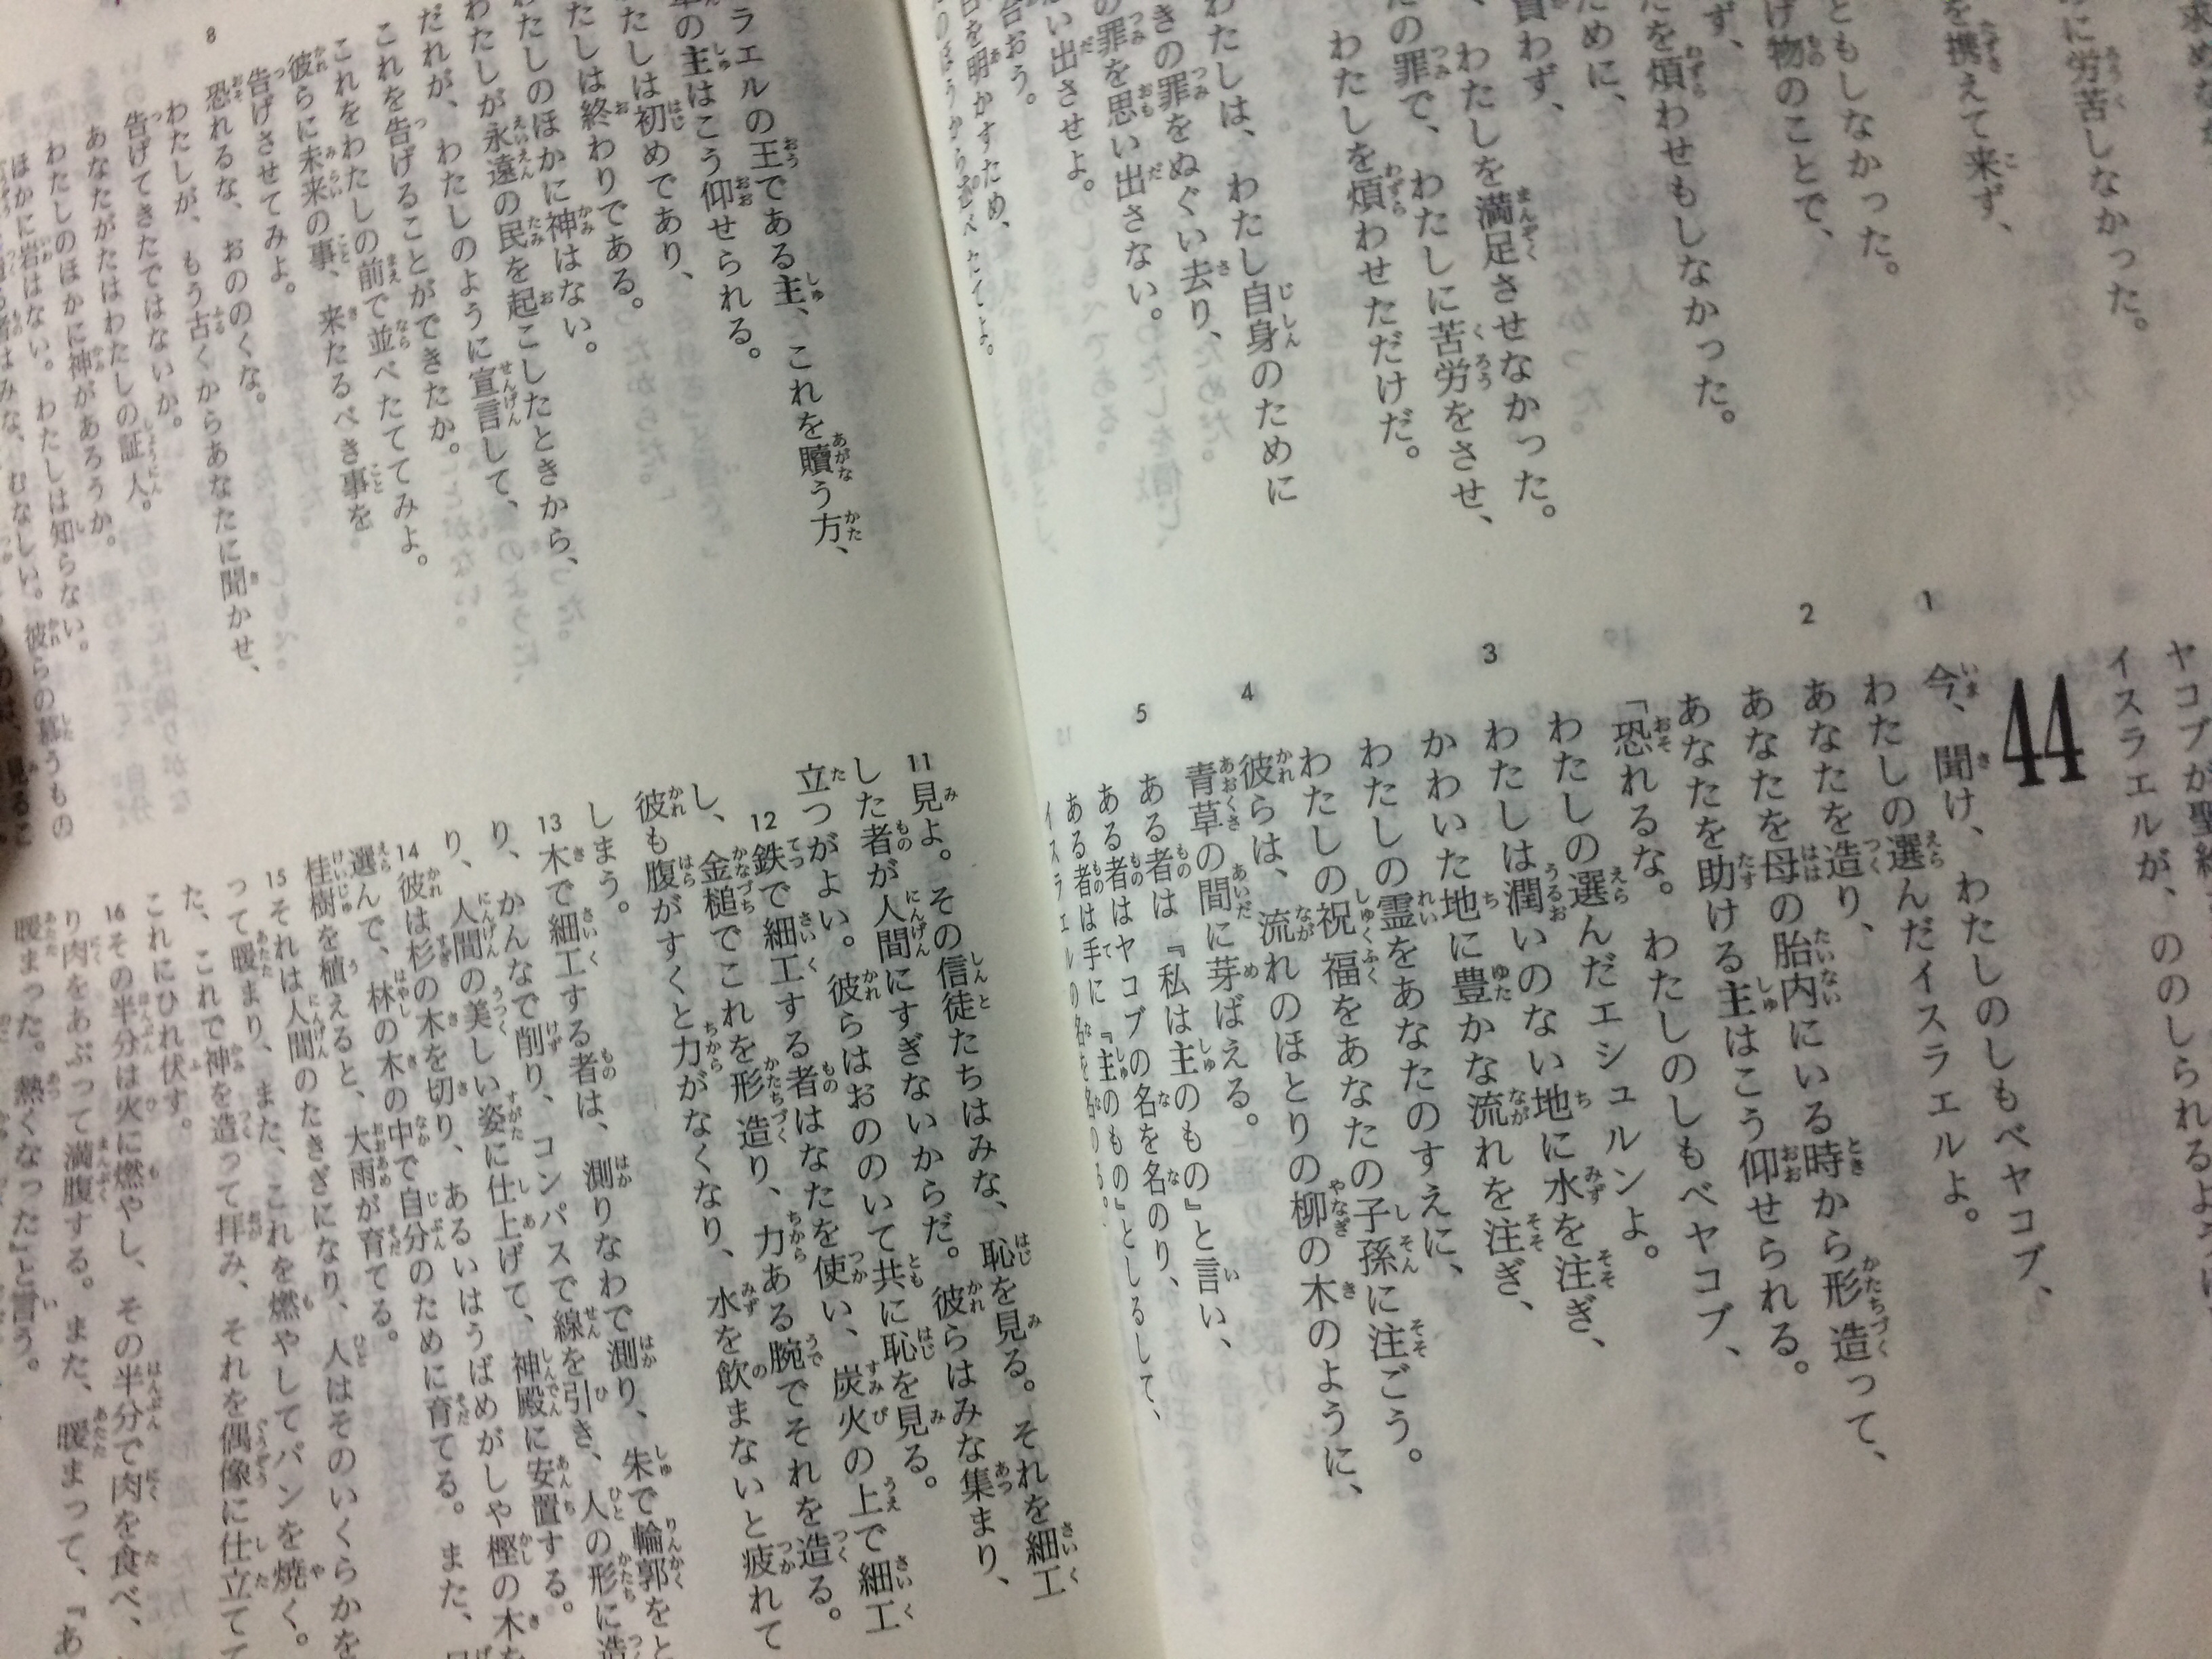 に労苦しなかった。
を携えて来ず、
ともしなかった。
げ物のことで、
ず、
を煩わせもしなかった。
ために、
買わず、
わたしを満足させなかった。
の罪で、わたしに苦労をさせ、
わたしを煩わせただけだ。
わたしは、わたし自身のために
きの罪をぬぐい去り、
の罪を思い出さない。
い出させよ。
合おう。
を明かすため、
のほうから述べたてよ。
ヤコブが聖絶
イスラエルが、ののしられるように
44
1 今、聞け、わたしのしもべヤコブ、
わたしの選んだイスラエルよ。
2 あなたを造り、
あなたを母の胎内にいる時から形造って、
あなたを助ける主はこう仰せられる。
「恐れるな。わたしのしもべヤコブ、
わたしの選んだエシュルンよ。
3 わたしは潤いのない地に水を注ぎ、
かわいた地に豊かな流れを注ぎ、
わたしの霊をあなたのすえに、
わたしの祝福をあなたの子孫に注ごう。
4 彼らは、流れのほとりの柳の木のように、
青草の間に芽ばえる。
5 ある者は『私は主のもの』と言い、
ある者はヤコブの名を名のり、
ある者は手に『主のもの』としるして、
イスラエルの名を名のる。
ラエルの王である主、これを贖う方、
の主はこう仰せられる。
たしは初めであり、
たしは終わりである。
たしのほかに神はない。
わたしが永遠の民を起こしたときから、
だれが、わたしのように宣言して、
これを告げることができたか。
これをわたしの前で並べたててみよ。
彼らに未来の事、来たるべき事を
告げさせてみよ。
8 恐れるな、おののくな。
わたしが、もう古くからあなたに聞かせ、
告げてきたではないか。
あなたがたはわたしの証人。
わたしのほかに神があろうか。
ほかに岩はない。わたしは知らない。
る者はみな、むなしい。彼らの慕うもの
11見よ。その信徒たちはみな、恥を見る。それを細工
した者が人間にすぎないからだ。彼らはみな集まり、
立つがよい。彼らはおののいて共に恥を見る。
12鉄で細工する者はなたを使い、炭火の上で細工
し、金槌でこれを形造り、力ある腕でそれを造る。
彼も腹がすくと力がなくなり、水を飲まないと疲れて
しまう。
13木で細工する者は、測りなわで測り、朱で輪郭をと
り、かんなで削り、コンパスで線を引き、人の形に造
り、人間の美しい姿に仕上げて、神殿に安置する。
14彼は杉の木を切り、あるいはうばめがしや樫の木を
選んで、林の木の中で自分のために育てる。また、
桂樹を植えると、大雨が育てる。
15それは人間のたきぎになり、人はそのいくらかを
って暖まり、また、これを燃やしてパンを焼く。
た、これで神を造って拝み、それを偶像に仕立てて
これにひれ伏す。
16その半分は火に燃やし、その半分で肉を食べ、
り肉をあぶって満腹する。また、暖まって、『あ
暖まった。熱くなった』と言う。